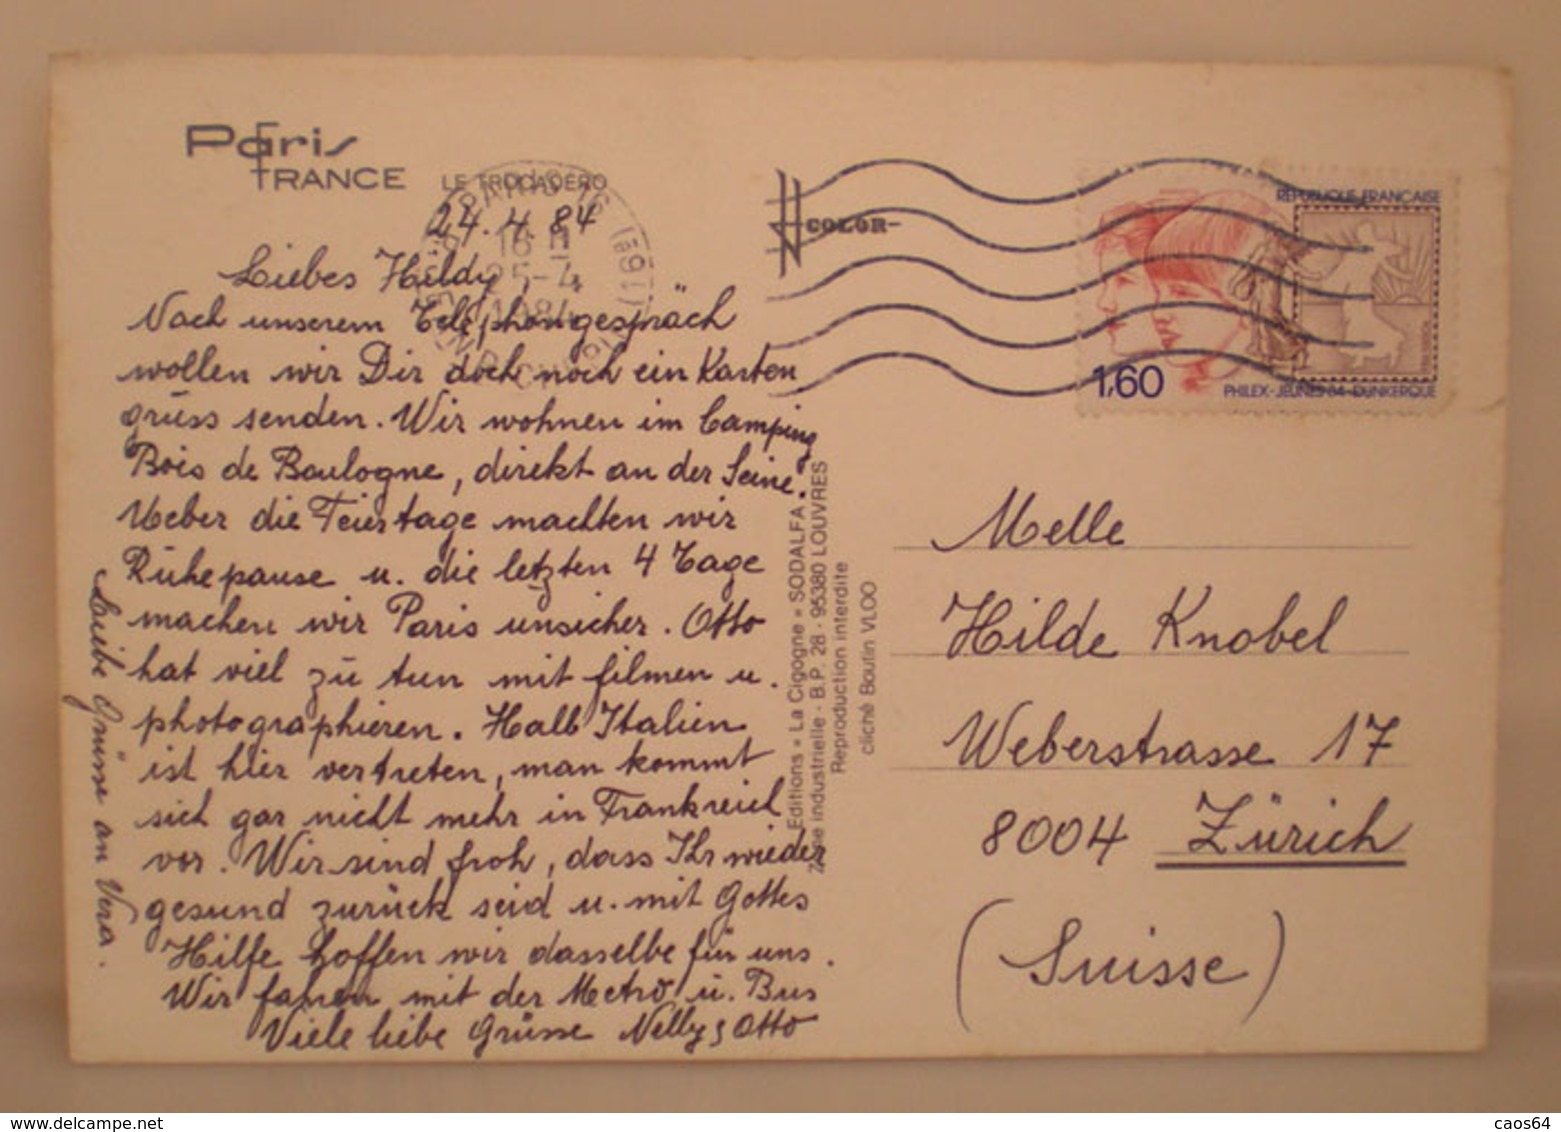 Paris
FRANCE
LE TROCADERO
24.4.84
Liebes Hildy,
Nach unserem Telephongespräch
wollen wir Dir doch noch ein Karten
grüss senden. Wir wohnen im Camping
Bois de Boulogne, direkt an der Seine.
Ueber die Feiertage machten wir
Ruhepause u. die letzten 4 Tage
machen wir Paris unsicher. Otto
hat viel zu tun mit filmen u.
photographieren. Halb Italien
ist hier vertreten, man kommt
sich gar nicht mehr in Frankreich
vor. Wir sind froh, dass Ihr wieder
gesund zurück seid u. mit Gottes
Hilfe hoffen wir dasselbe für uns.
Wir fahren mit der Metro u. Bus
Viele liebe Grüsse Nelly & Otto
Liebe Grüsse an Vera.
Editions « La Cigogne » SODALFA
Zone industrielle - B.P. 28 - 95380 LOUVRES
Reproduction interdite
cliché Boutin VLOO
COLOR-
REPUBLIQUE FRANÇAISE
1,60
PHILEX-JEUNES 84-DUNKERQUE
PARIS 16
16 H
25-4
1984
Melle
Hilde Knobel
Weberstrasse 17
8004 Zürich
(Suisse)
delcampe.net
caos64